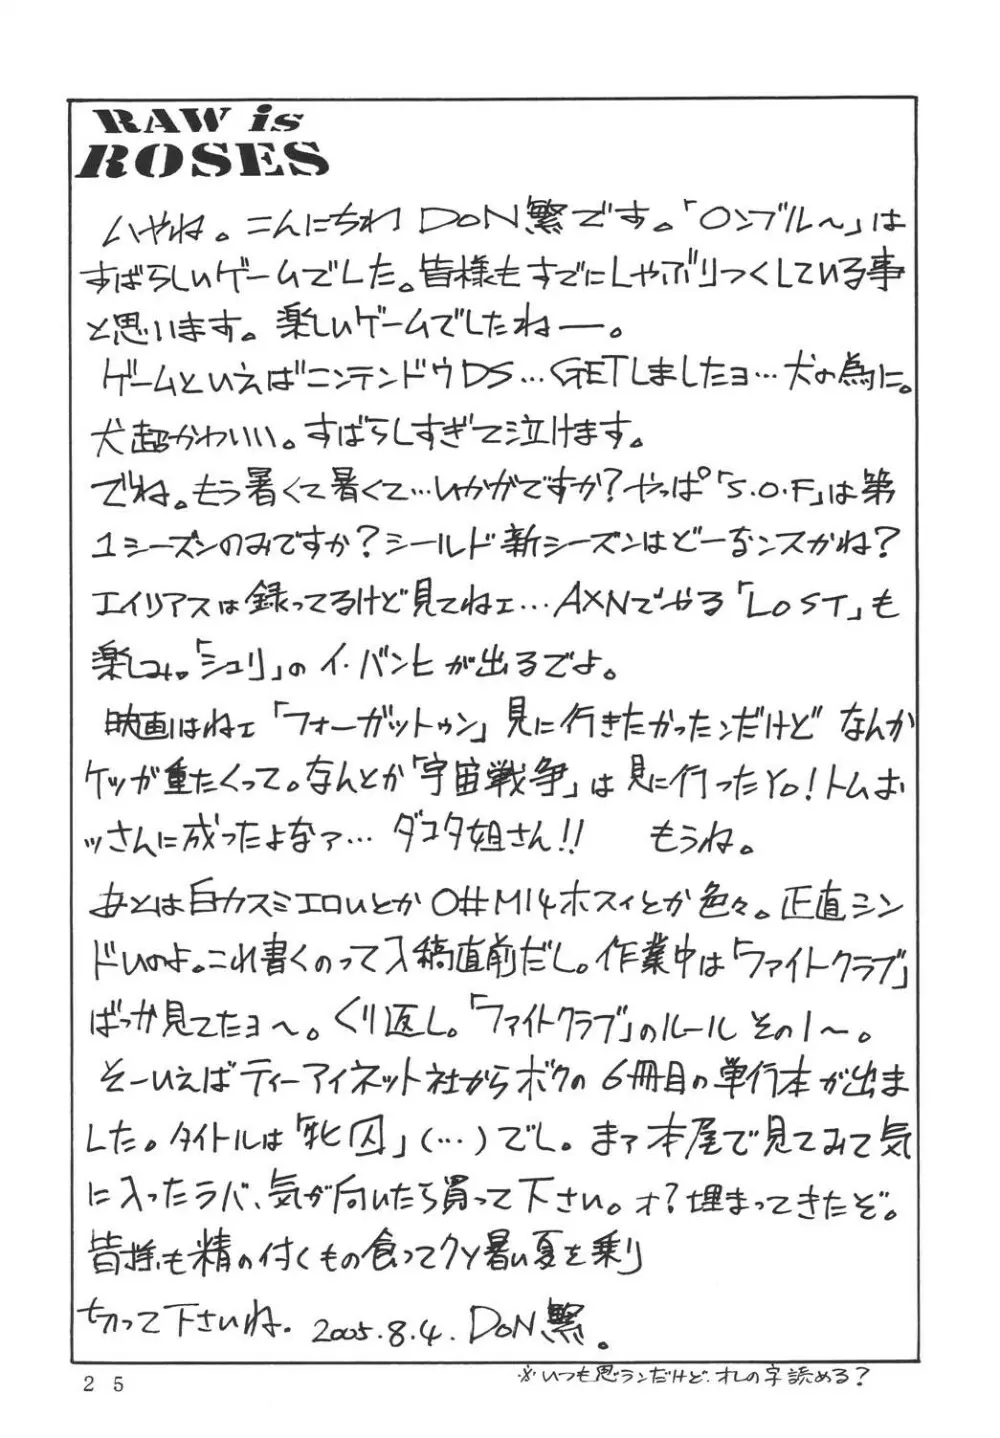 RAW is
ROSES
ハやね。こんにちわ DoN繁です。「ロンブル〜」は
すばらしいゲームでした。皆様もすでにしゃぶりつくしている事
と思います。楽しいゲームでしたねー。
ゲームといえばニンテンドウDS…GETしましたョ…犬の為に。
犬超かわいい。すばらしすぎて泣けます。
でね。もう暑くて暑くて…いかがですか?やっぱ「S.O.F」は第
1シーズンのみですか?シールド新シーズンはどーなンスかね?
エイリアスは録ってるけど見てねェ…AXNでやる「LOST」も
楽しみ。「シュリ」のイ・バンヒが出るでよ。
映画はねェ「フォーガットゥン」見に行きたかったンだけど なんか
ケツが重たくって。なんとか「宇宙戦争」は見に行ったYo!トムお
ッさんに成ったよなァ… ダコタ姐さん!! もうね。
あとは白カスミエロいとか O#M14ホスィとか色々。正直シン
ドいのよ。これ書くのって入稿直前だし。作業中は「ファイトクラブ」
ばっか見てたョ〜。くり返し。「ファイトクラブ」のルール その1〜。
そーいえばティーアイネット社からボクの6冊目の単行本が出ま
した。タイトルは「牝囚」(…)でし。まァ本屋で見てみて気
に入ったラバ、気が向いたら買って下さい。オ?埋まってきたぞ。
皆様も精の付くもの食ってクソ暑い夏を乗り
切って下さいね. 2005.8.4. DoN繁。
※いつも思ランだけど、オレの字読める?
25